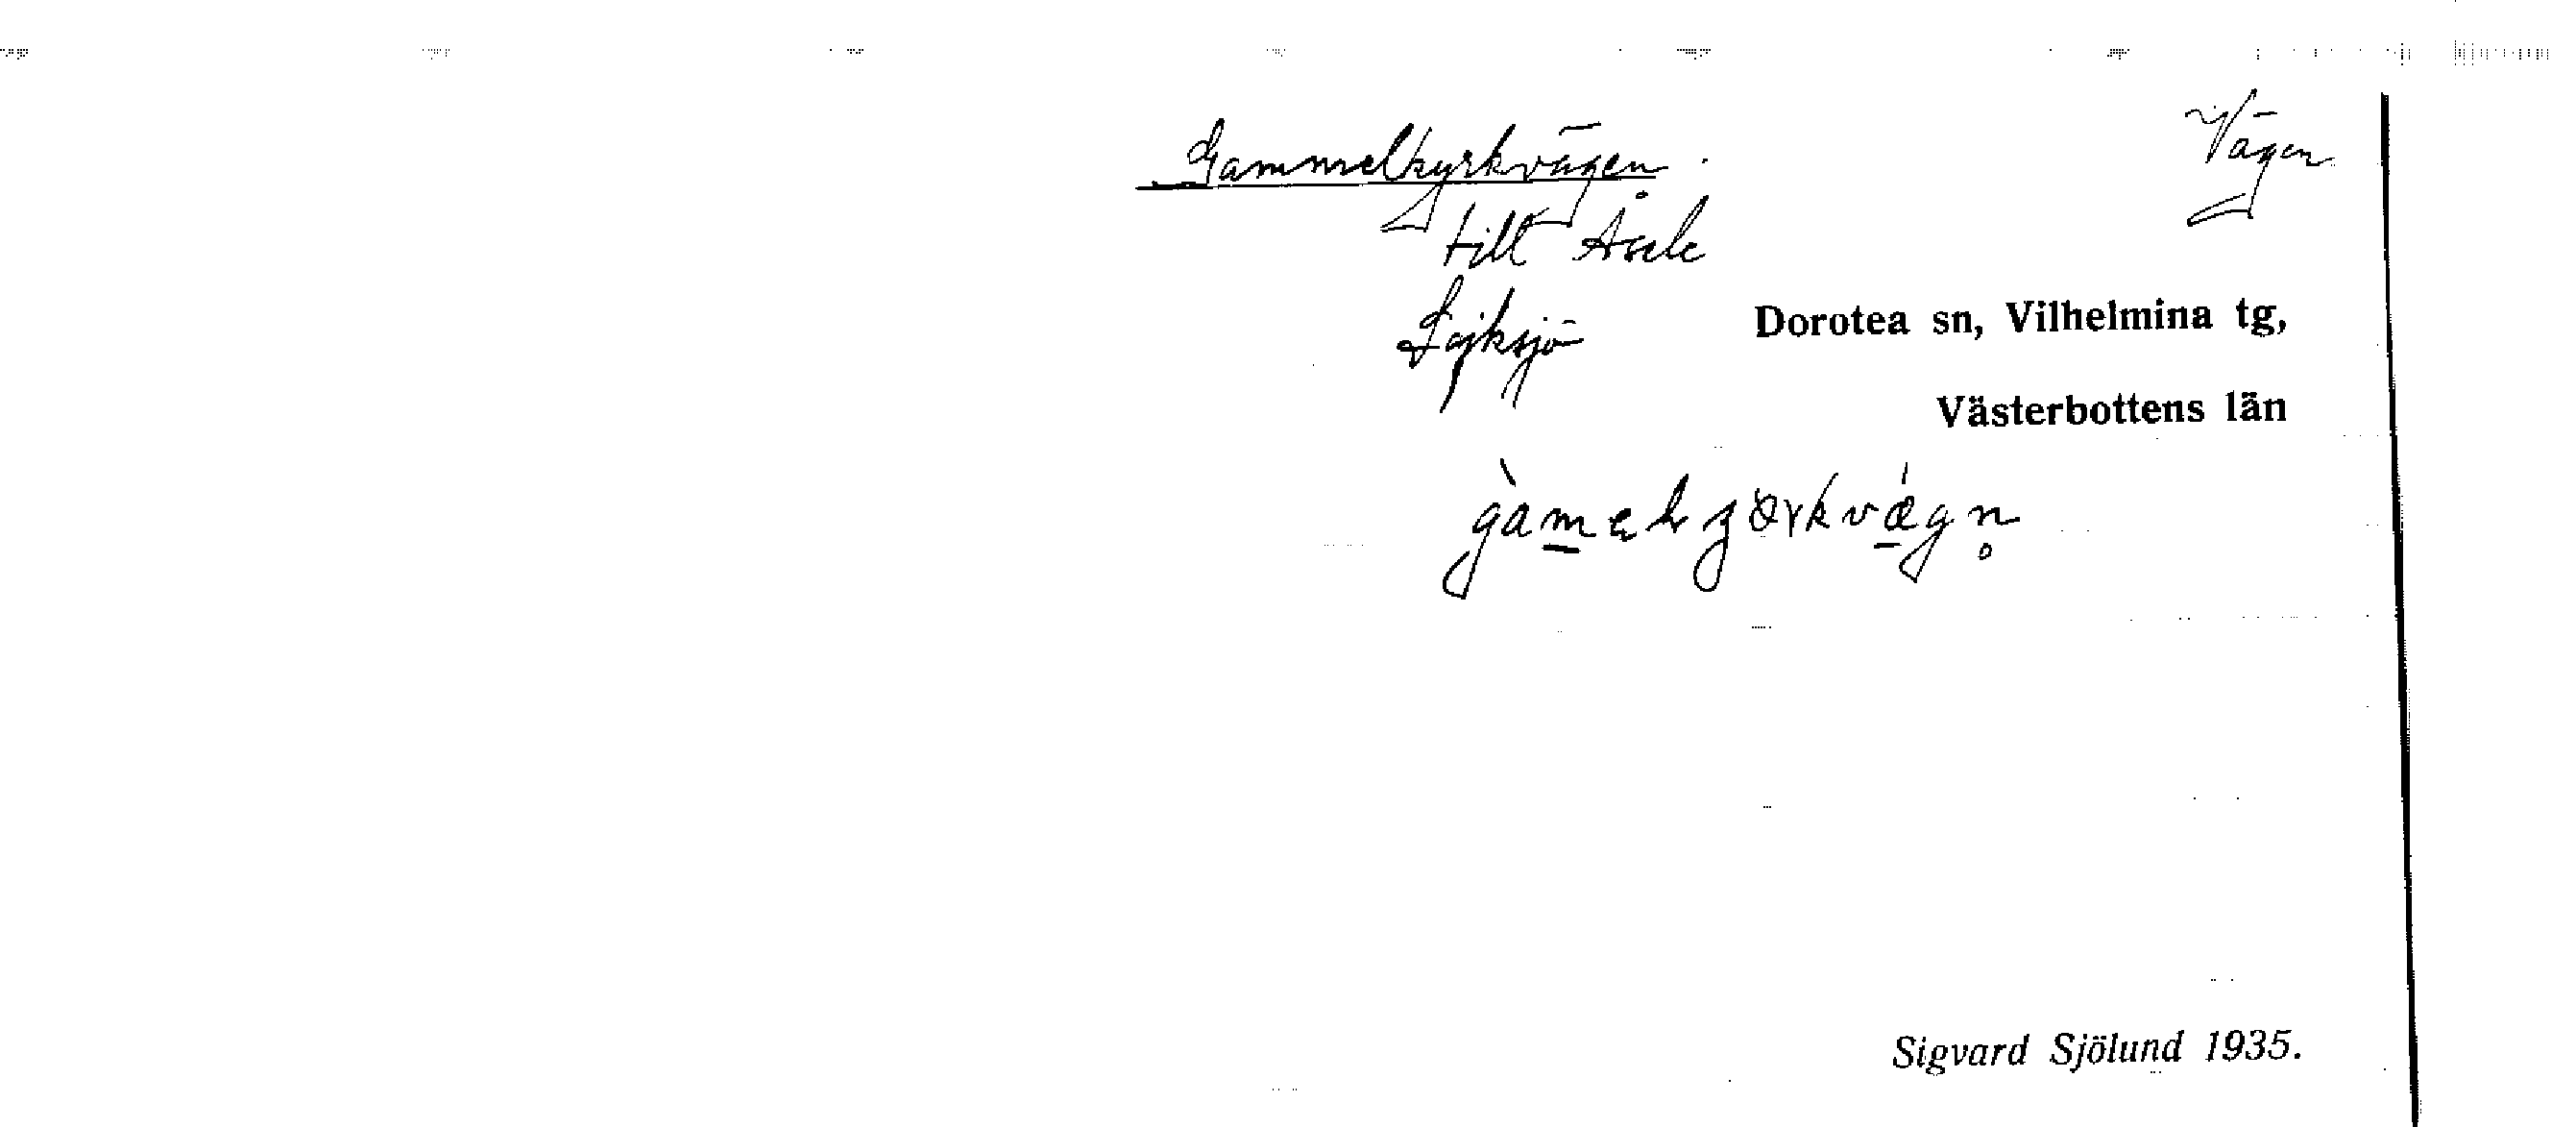 Gammelkyrkvägen. Vägen
till Åsele
Lajksjö Dorotea sn, Vilhelmina tg,
Västerbottens län
Sigvard Sjölund 1935.